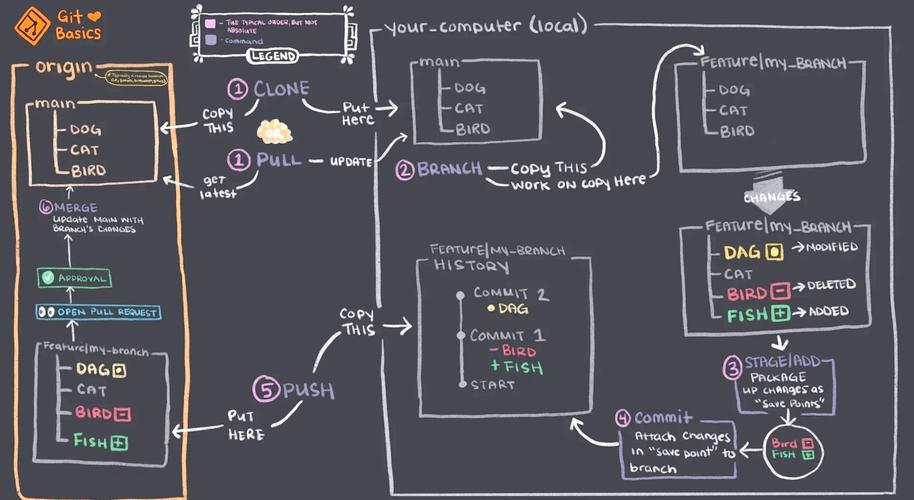 Git ❤
Basics
- THE TYPICAL ORDER, BUT NOT
ABSOLUTE
- Command
LEGEND
origin
main
DOG
CAT
BIRD
⑥ MERGE
Update MAIN WITH
BRANCH'S CHANGES
APPROVAL
OPEN PULL REQUEST
Feature/my-branch
DAG
CAT
BIRD
FISH
① CLONE
COPY
THIS
PUT
Here
OR
① PULL
UPDATE
get
latest
COPY
THIS
⑤ PUSH
PUT
HERE
your_computer (local)
main
DOG
CAT
BIRD
② BRANCH
COPY THIS
WORK ON COPY Here
FEATURE/MY_BRANCH
DOG
CAT
BIRD
CHANGES
FEATURE/MY_BRANCH
DAG → MODIFIED
CAT
BIRD → DELETED
FISH → ADDED
③ STAGE/ADD
PACKAGE
UP CHANGES AS
"SAVE POINTS"
Bird
FISH
④ Commit
Attach changes
in "save point" to
branch
FEATURE/MY-BRANCH
HISTORY
COMMIT 2
DAG
COMMIT 1
- BIRD
+ FISH
START